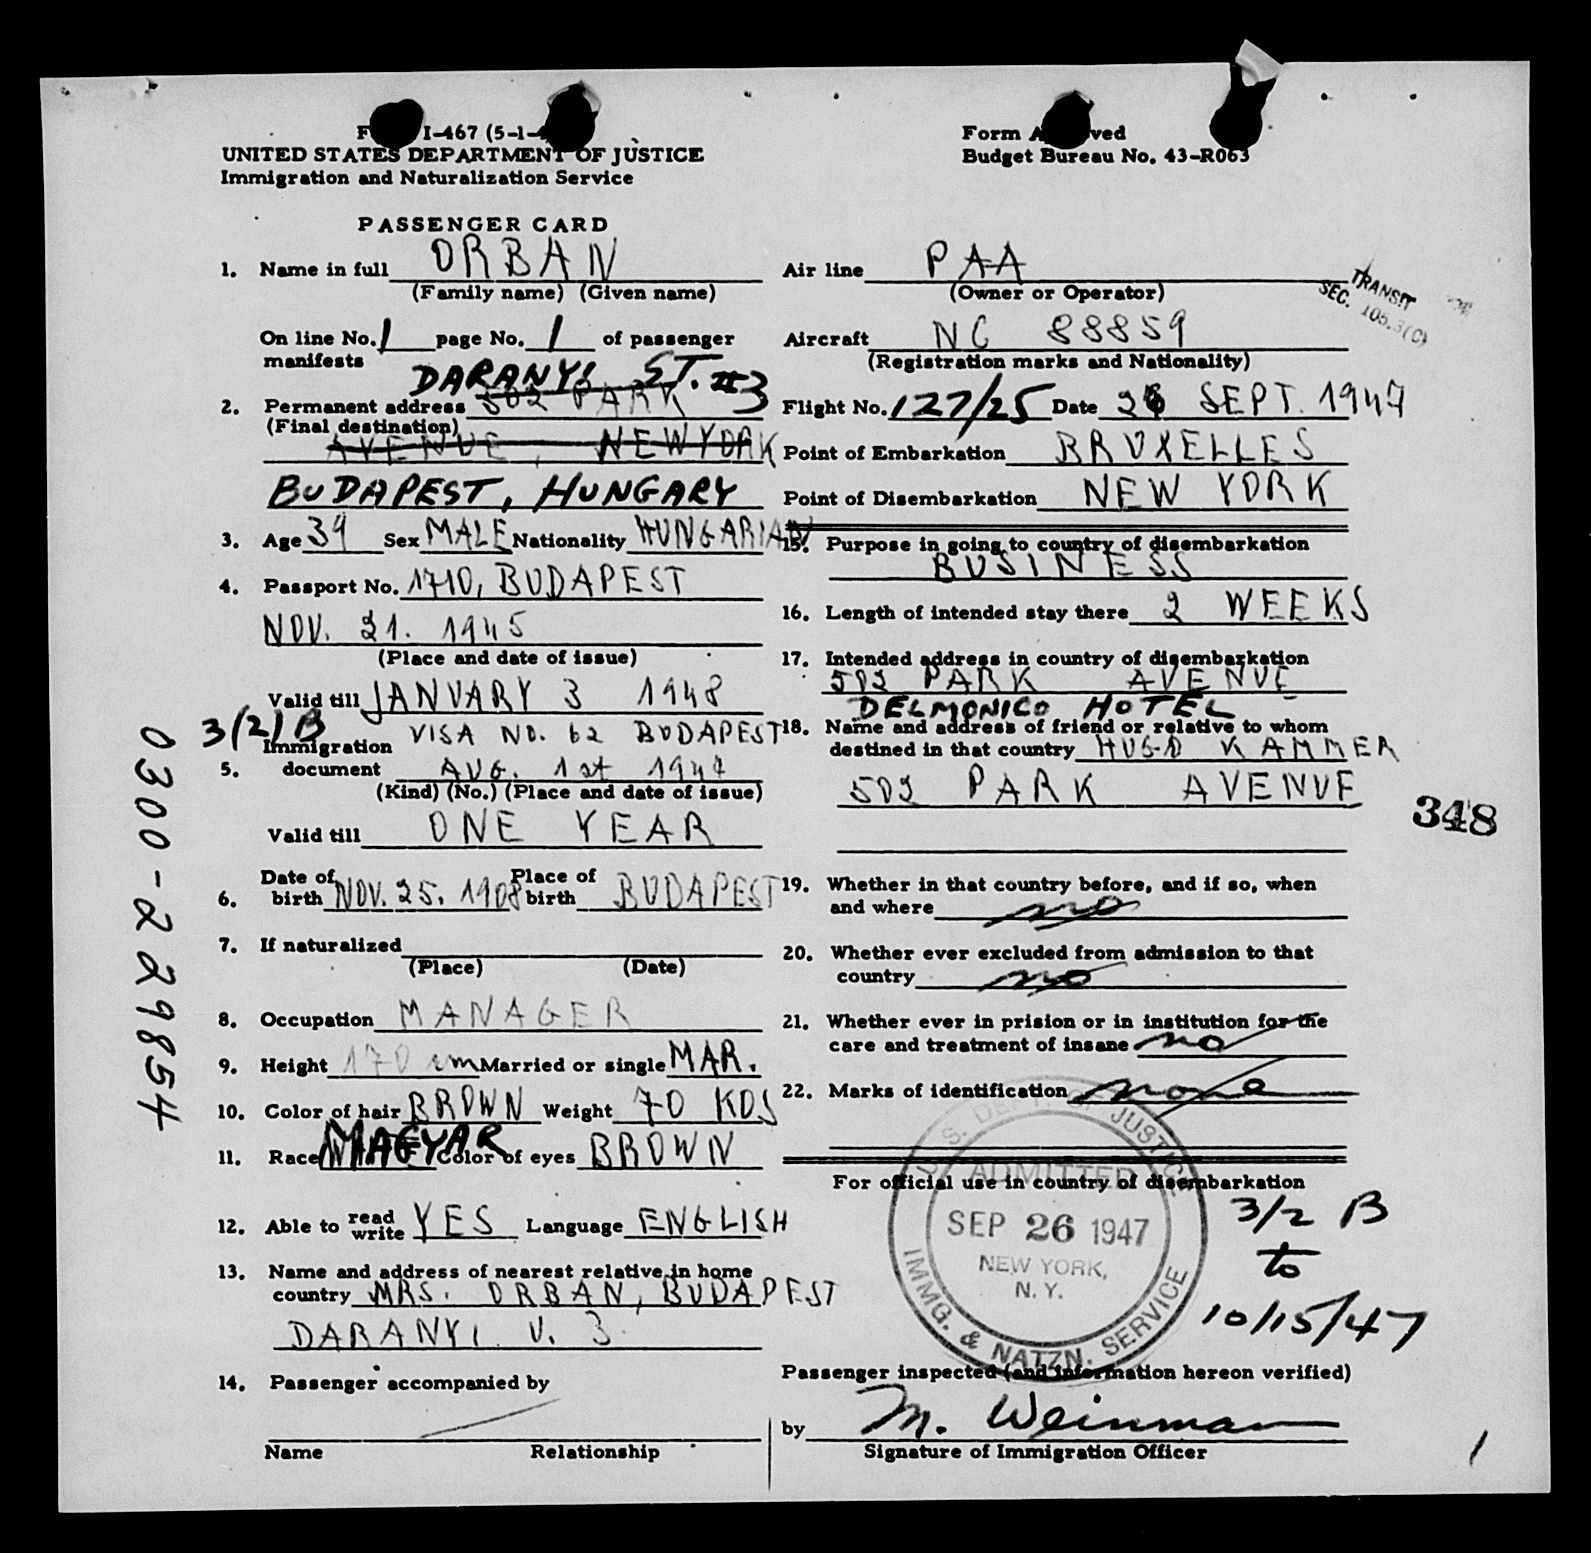 I-467 (5-1-
UNITED STATES DEPARTMENT OF JUSTICE
Immigration and Naturalization Service
Form Approved
Budget Bureau No. 43-R063
PASSENGER CARD
1. Name in full ORBAN
(Family name) (Given name)
On line No. 1 page No. 1 of passenger
manifests
DARANYI ST. #3
2. Permanent address 502 PARK
(Final destination)
AVENUE, NEWYORK
BUDAPEST, HUNGARY
3. Age 39 Sex MALE Nationality HUNGARIAN
4. Passport No. 1710, BUDAPEST
NOV. 21. 1945
(Place and date of issue)
Valid till JANUARY 3 1948
3(2)B
Immigration VISA NO. 62 BUDAPEST
5. document AUG. 1st 1947
(Kind) (No.) (Place and date of issue)
Valid till ONE YEAR
6. Date of birth NOV. 25. 1908 Place of birth BUDAPEST
7. If naturalized
(Place) (Date)
8. Occupation MANAGER
9. Height 170 cm Married or single MAR.
10. Color of hair BROWN Weight 70 KOS
11. Race MAGYAR Color of eyes BROWN
12. Able to read write YES Language ENGLISH
13. Name and address of nearest relative in home
country MRS. ORBAN, BUDAPEST
DARANYI U. 3.
14. Passenger accompanied by
Name Relationship
Air line PAA
(Owner or Operator)
TRANSIT
SEC. 105.3(C)
Aircraft NC 88859
(Registration marks and Nationality)
Flight No. 127/25 Date 26 SEPT. 1947
Point of Embarkation BRUXELLES
Point of Disembarkation NEW YORK
15. Purpose in going to country of disembarkation
BUSINESS
16. Length of intended stay there 2 WEEKS
17. Intended address in country of disembarkation
502 PARK AVENUE
DELMONICO HOTEL
18. Name and address of friend or relative to whom
destined in that country HUGO KAMMER
502 PARK AVENUE
348
19. Whether in that country before, and if so, when
and where no
20. Whether ever excluded from admission to that
country no
21. Whether ever in prision or in institution for the
care and treatment of insane no
22. Marks of identification none
For official use in country of disembarkation
U. S. DEPT. OF JUSTICE
ADMITTED
SEP 26 1947
NEW YORK,
N. Y.
IMMG. & NATZN. SERVICE
3/2 B
to
10/15/47
Passenger inspected (and information hereon verified)
by M. Weinman
Signature of Immigration Officer
1
0300-229854